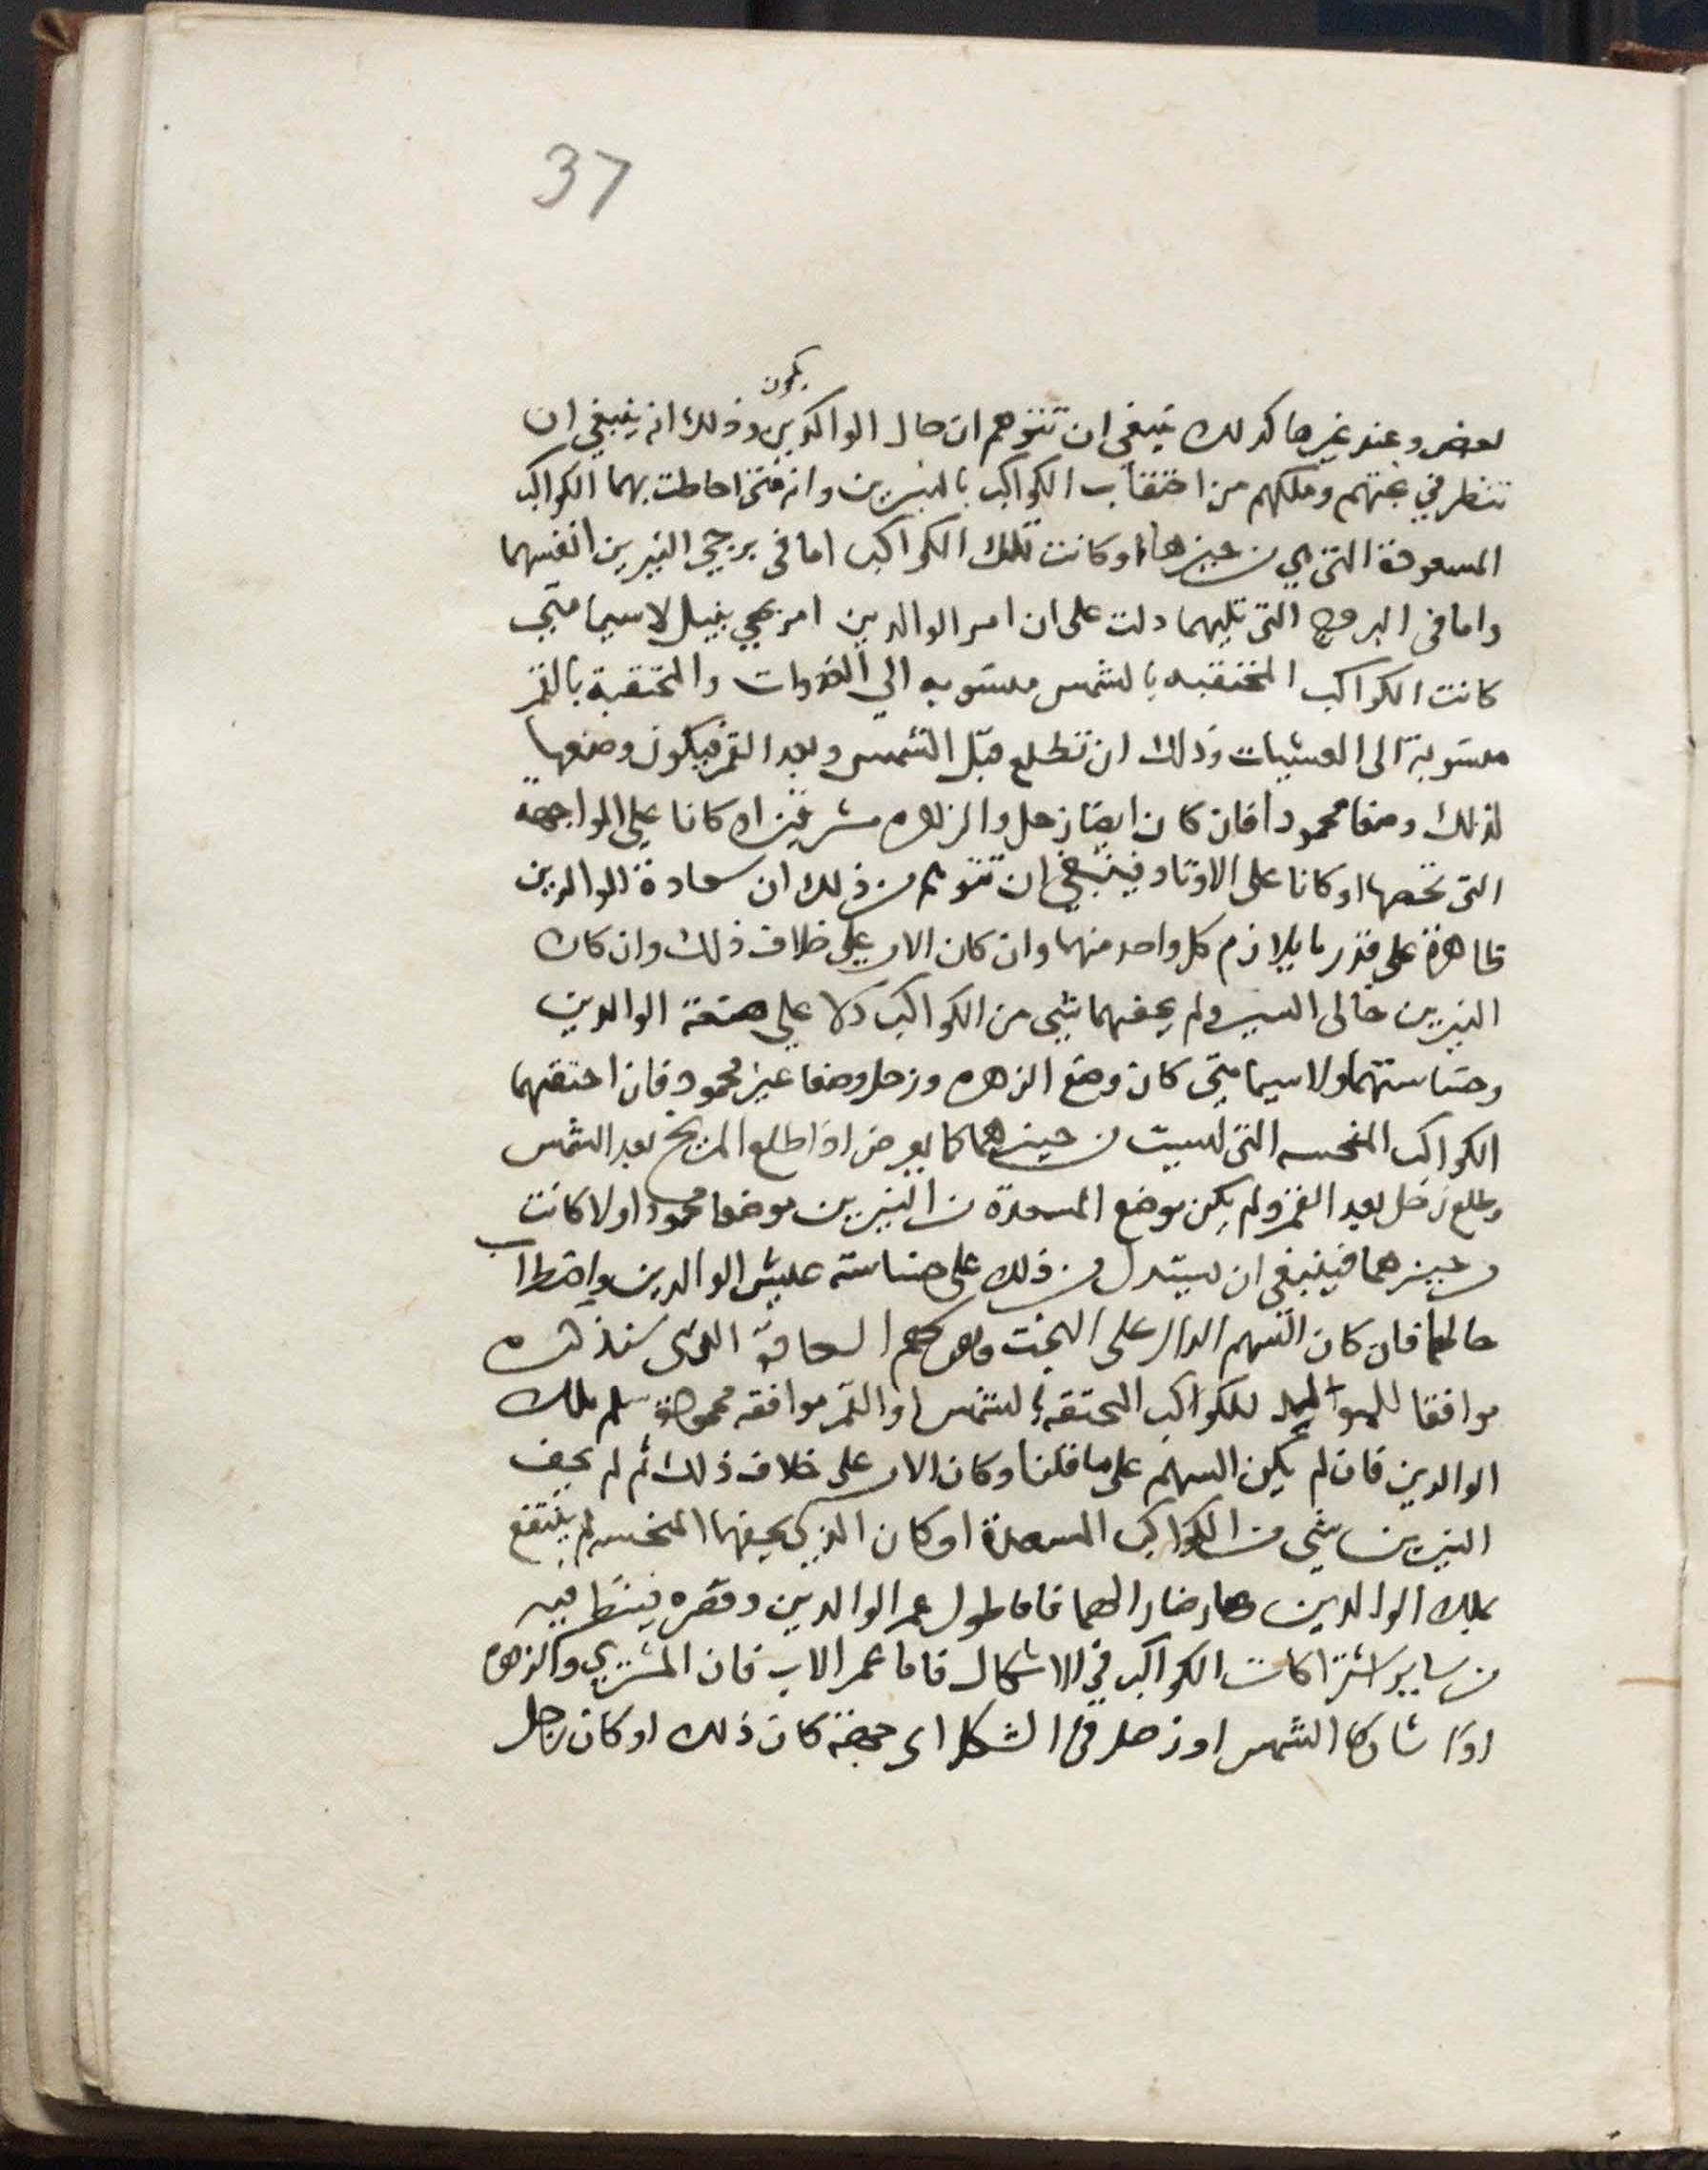 37
يكون
لبعض وعند غيرها كذلك ينبغي ان تتوهم ان حال الوالدين وذلك انه ينبغي ان
تنظر في بختهم وملكهم من احتقاب الكواكب بالنيرين وانه متى احاطت بهما الكواكب
المسعودة التي هي من حيزها وكانت تلك الكواكب اما في برجي النيرين انفسهما
واما في البروج التي تليهما دلت على ان امر الوالدين امر بهي نبيل لاسيما متي
كانت الكواكب المحتقبه بالشمس منسوبه الي الغدوات والمحتقبة بالقمر
منسوبة الى العشيات وذلك ان تطلع قبل الشمس وبعد القمر فيكون وضعها
لذلك وضعا محمودا فان كان ايضا زحل والزهره مشرقين او كانا علي المواجهة
التي تخصها او كانا على الاوتاد فينبغي ان تتوهم من ذلك ان سعادة الوالدين
ظاهرة علي قدر ما يلازم كل واحد منهما وان كان الامر علي خلاف ذلك وان كان
النيرين خالى السير ولم يحفهما شي من الكواكب دلا علي ضعة الوالدين
وخساستهما ولاسيما متى كان وضع الزهره وزحل وضعا غير محمود فان احتقهما
الكواكب المنحسه التي ليست من حيزهما كما يعرض اذا طلع المريخ بعد الشمس
وطلع زحل بعد القمر ولم يكن موضع المسعدة من النيرين موضعا محمودا ولا كانت
من حيزهما فينبغي ان يستدل من ذلك على خساسة عيش الوالدين واضطراب
حالهما فان كان السهم الدال على البخت وهو سهم السعادة الذى سنذكره
موافقا للمواليد للكواكب المحتقه بالشمس او القمر موافقه محموده سلم ملك
الوالدين فان لم يكن السهم على ما قلنا وكان الامر على خلاف ذلك ثم لم يحف
النيرين شي من الكواكب المسعدة او كان الذي يحفهما المنحسه لم ينتفع
بملك الوالدين وصار ضارا لهما فاما طول عمر الوالدين وقصره فينظر فيه
من ساير اشتراكات الكواكب في الاشكال فاما عمر الاب فان المشتري والزهره
اذا شاركا الشمس او زحل في الشكل اى جهة كان ذلك او كان زحل